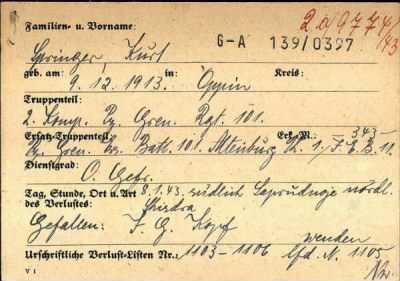 2a 977 4/43
Familien- u. Vorname:
G-A 139/0397
Springer, Kurt
geb. am: 9.12.1913 in: Oppin Kreis:
Truppenteil:
2. Komp. Pz. Gren. Rgt. 101.
Ersatz-Truppenteil: Erk.-M.: 343
Pz. Gren. Ers. Batl. 101. Altenburg
Dienstgrad: O. Gefr.
Tag, Stunde, Ort u. Art 8.1.43. südlich nördl.
des Verlustes: Shisdra
Gefallen: I. G. Kopf
wenden
Urschriftliche Verlust-Listen Nr.: 1103-1106 lfd. N. 1105
V 1